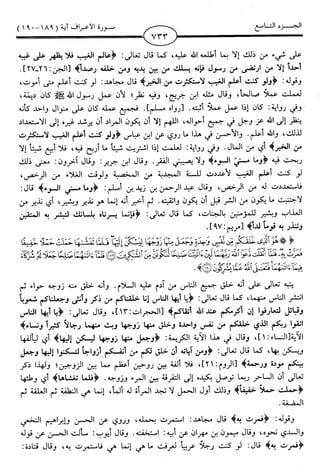 الجـــزء التاسـع
٧٣٣
سورة الأعراف آية (١٨٩ - ١٩٠)
على شيء من ذلك إلا بما أطلعه الله عليه، كما قال تعالى: ﴿عالم الغيب فلا يظهر على غيبه
أحداً إلا من ارتضى من رسول فإنه يسلك من بين يديه ومن خلفه رصداً﴾ [الجن:٢٦ـ٢٧].
وقوله: ﴿ولو كنت أعلم الغيب لاستكثرت من الخير﴾ قال مجاهد: لو كنت أعلم متى أموت،
لعملت عملاً صالحاً، وقال مثله ابن جريج، وفيه نظر؛ لأن عمل رسول الله ﷺ كان ديمة،
وفي رواية: كان إذا عمل عملاً أثبته. [رواه مسلم]. فجميع عمله كان على منوال واحد كأنه
ينظر إلى الله عز وجل في جميع أحواله، اللهم إلا أن يكون المراد أن يرشد غيره إلى الاستعداد
لذلك، والله أعلم. والأحسن في هذا ما روي عن ابن عباس ﴿ولو كنت أعلم الغيب لاستكثرت
من الخير﴾ أي من المال. وفي رواية: لعلمت إذا اشتريت شيئاً ما أربح فيه، فلا أبيع شيئاً إلا
ربحت فيه ﴿وما مسني السوء﴾ ولا يصيبني الفقر. وقال ابن جرير: وقال آخرون: معنى ذلك
لو كنت أعلم الغيب لأعددت للسنة المجدبة من المخصبة ولوقت الغلاء من الرخص،
فاستعددت له من الرخص، وقال عبد الرحمن بن زيد بن أسلم: ﴿وما مسني السوء﴾ قال:
لاجتنبت ما يكون من الشر قبل أن يكون واتقيته. ثم أخبر أنه إنما هو نذير وبشير، أي نذير من
العذاب وبشير للمؤمنين بالجنات، كما قال تعالى: ﴿فإنما يسرناه بلسانك لتبشر به المتقين
وتنذر به قوماً لداً﴾ [مريم:٩٧].
﴿هُوَ الَّذِي خَلَقَكُم مِّن نَّفْسٍ وَاحِدَةٍ وَجَعَلَ مِنْهَا زَوْجَهَا لِيَسْكُنَ إِلَيْهَا فَلَمَّا تَغَشَّاهَا حَمَلَتْ حَمْلًا خَفِيفًا
فَمَرَّتْ بِهِ فَلَمَّا أَثْقَلَت دَّعَوَا اللَّهَ رَبَّهُمَا لَئِنْ آتَيْتَنَا صَالِحًا لَّنَكُونَنَّ مِنَ الشَّاكِرِينَ (١٨٩) فَلَمَّا آتَاهُمَا صَالِحًا جَعَلَا لَهُ شُرَكَاءَ
فِيمَا آتَاهُمَا فَتَعَالَى اللَّهُ عَمَّا يُشْرِكُونَ (١٩٠)﴾
ينبه تعالى على أنه خلق جميع الناس من آدم عليه السلام. وأنه خلق منه زوجه حواء ثم
انتشر الناس منهما، كما قال تعالى: ﴿يا أيها الناس إنا خلقناكم من ذكر وأنثى وجعلناكم شعوباً
وقبائل لتعارفوا إن أكرمكم عند الله أتقاكم﴾ [الحجرات:١٣]، وقال تعالى: ﴿يا أيها الناس
اتقوا ربكم الذي خلقكم من نفس واحدة وخلق منها زوجها وبث منهما رجالاً كثيراً ونساء﴾
الآية [النساء:١]، وقال في هذا الآية الكريمة: ﴿وجعل منها زوجها ليسكن إليها﴾ أي ليألفها
ويسكن بها، كما قال تعالى: ﴿ومن آياته أن خلق لكم من أنفسكم أزواجاً لتسكنوا إليها وجعل
بينكم مودة ورحمة﴾ [الروم:٢١]، فلا ألفة بين روحين أعظم مما بين الزوجين؛ ولهذا ذكر
تعالى أن الساحر ربما توصل بكيده إلى التفرقة بين المرء وزوجه. ﴿فلما تغشاها﴾ أي وطئها
﴿حملت حملاً خفيفاً﴾ وذلك أول الحمل لا تجد المرأة له ألماً، إنما هي النطفة ثم العلقة ثم
المضغة.
وقوله: ﴿فمرت به﴾ قال مجاهد: استمرت بحمله، وروي عن الحسن وإبراهيم النخعي
والسدي نحوه، وقال ميمون بن مهران عن أبيه: استخفته. وقال أيوب: سألت الحسن عن قوله
﴿فمرت به﴾ قال: لو كنت رجلاً عربياً لعرفت ما هي إنما هي فاستمرت به، وقال قتادة: